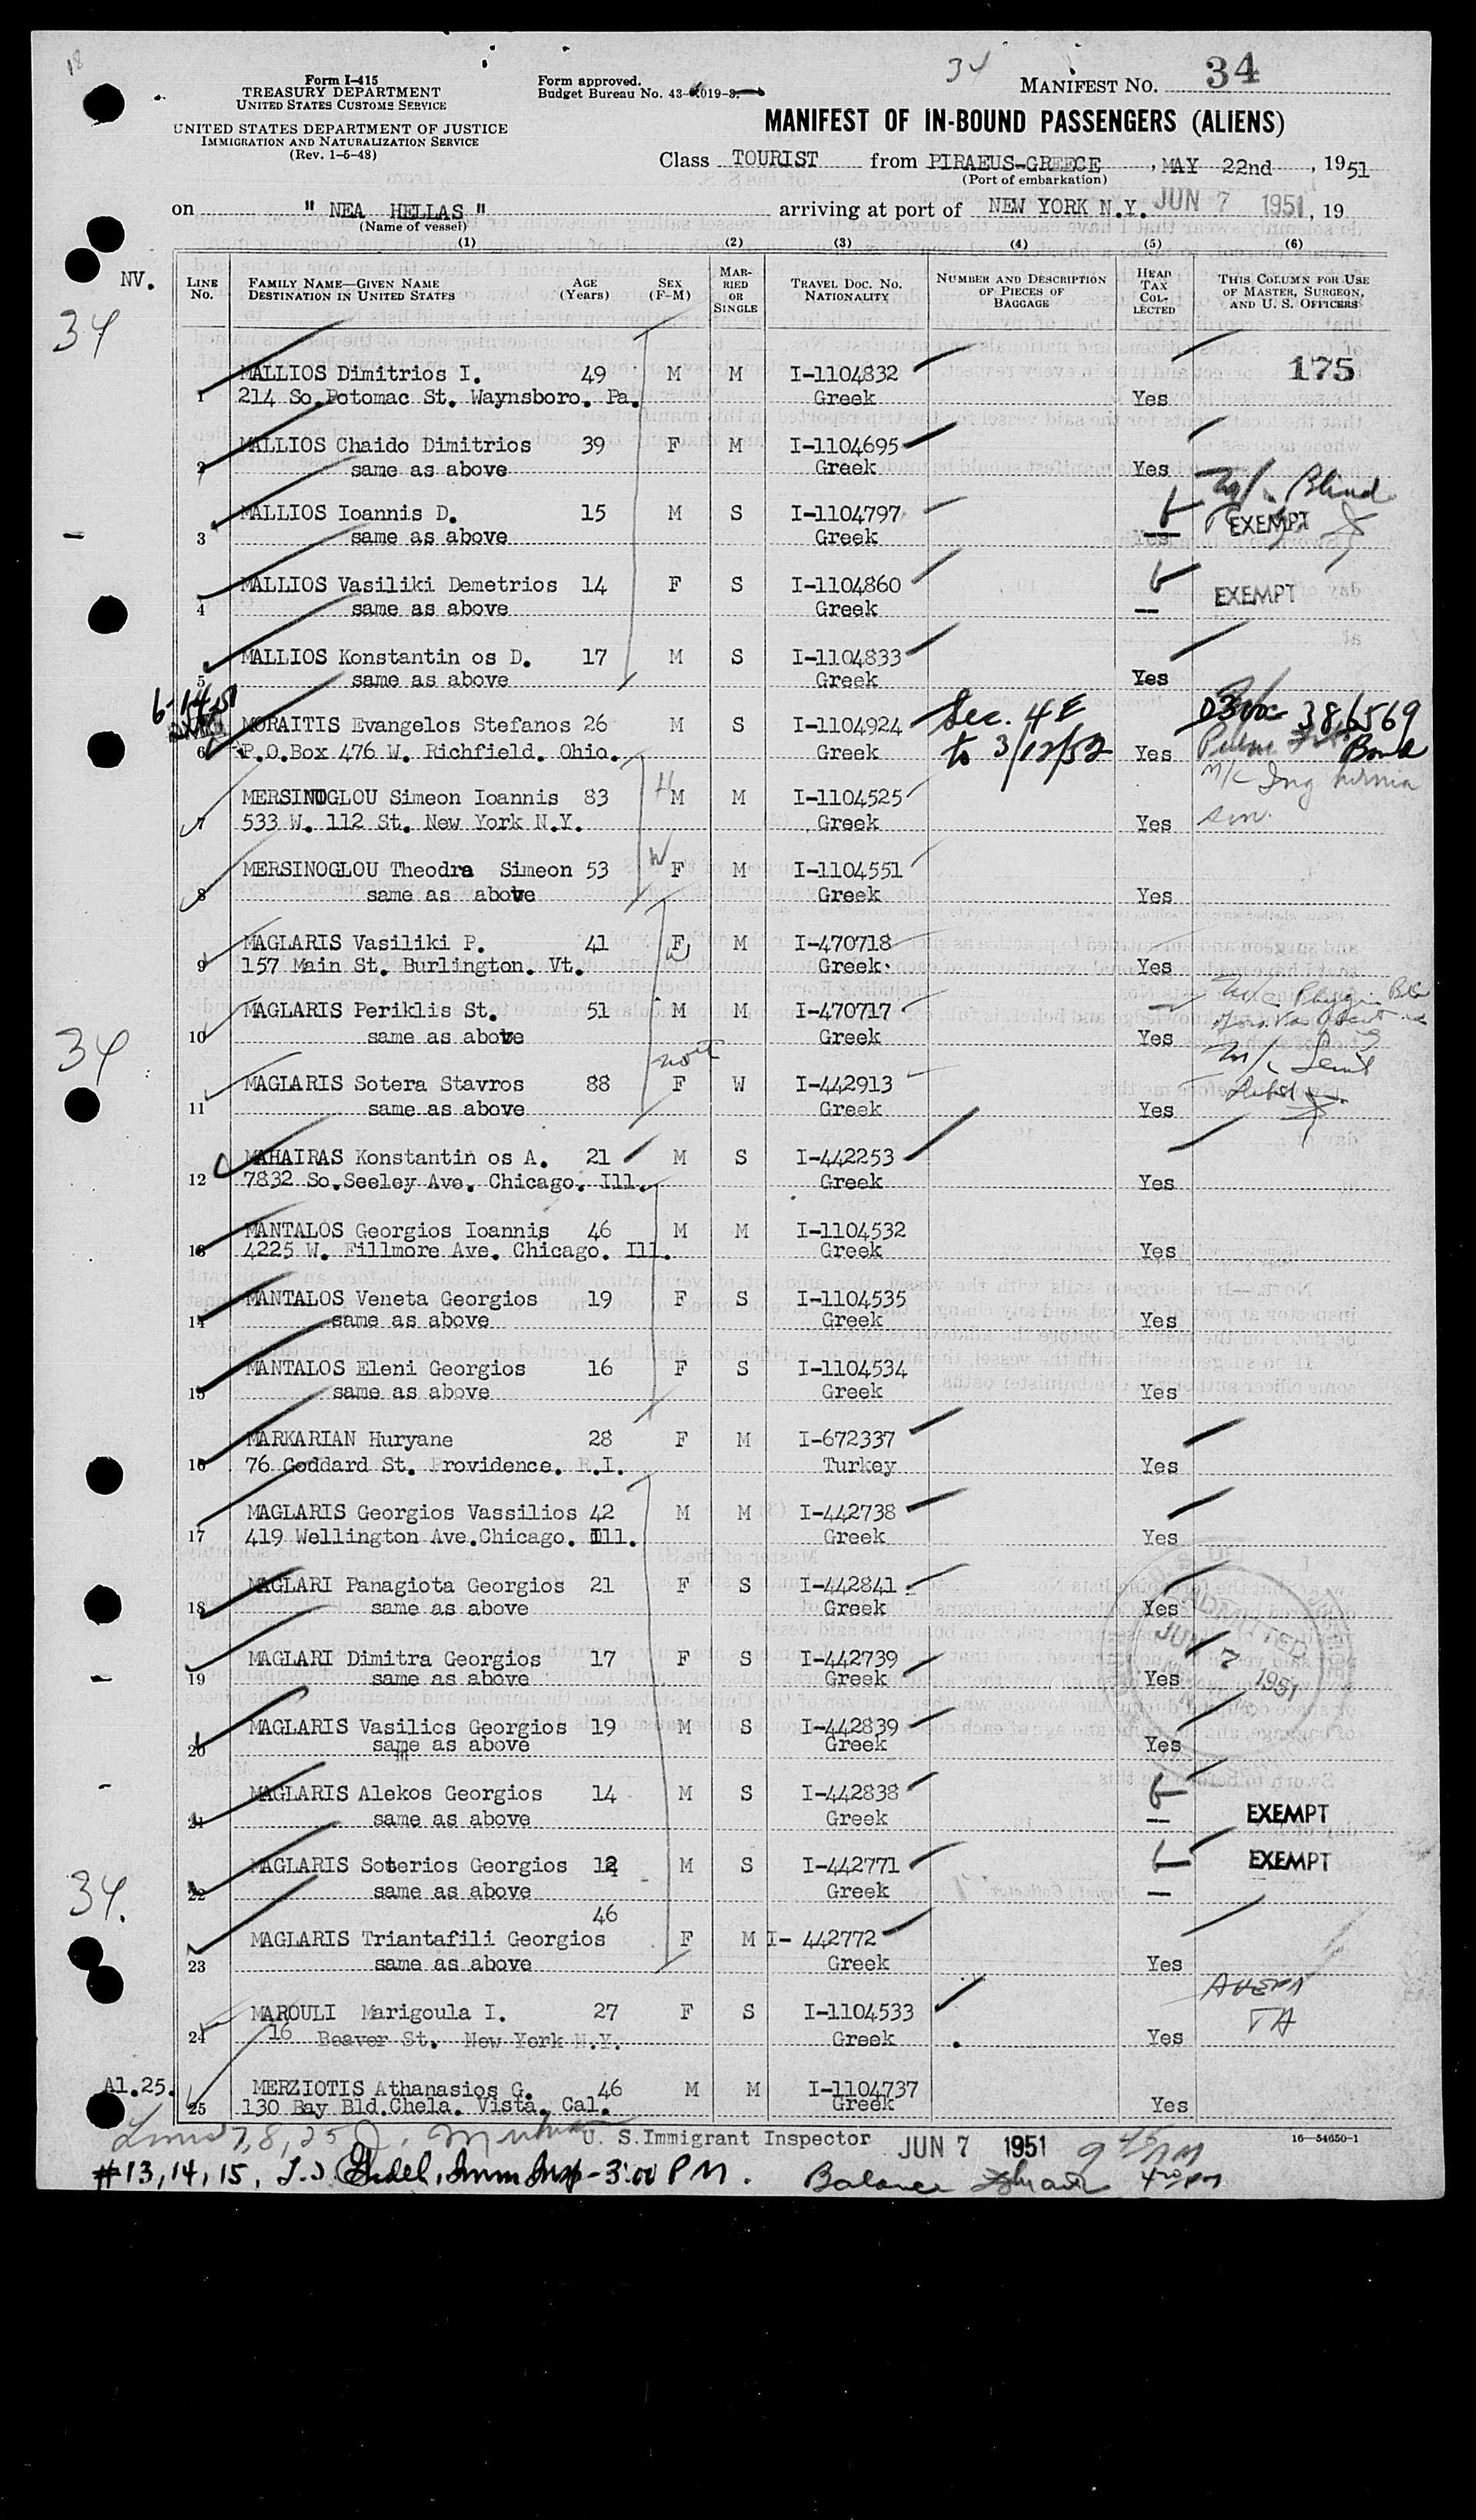 18
Form I-415
TREASURY DEPARTMENT
UNITED STATES CUSTOMS SERVICE
UNITED STATES DEPARTMENT OF JUSTICE
IMMIGRATION AND NATURALIZATION SERVICE
(Rev. 1-5-48)
Form approved.
Budget Bureau No. 43-R019-3.
34
MANIFEST NO. 34
MANIFEST OF IN-BOUND PASSENGERS (ALIENS)
Class TOURIST from PIRAEUS-GREECE, MAY 22nd, 1951
(Port of embarkation)
on " NEA HELLAS " arriving at port of NEW YORK N.Y. JUN 7 1951, 19
(Name of vessel)
(1) (2) (3) (4) (5) (6)
NV.
LINE No. FAMILY NAME—GIVEN NAME DESTINATION IN UNITED STATES AGE (Years) SEX (F-M) MARRIED OR SINGLE TRAVEL DOC. NO. NATIONALITY NUMBER AND DESCRIPTION OF PIECES OF BAGGAGE HEAD TAX COLLECTED THIS COLUMN FOR USE OF MASTER, SURGEON, AND U. S. OFFICERS
34
175
MALLIOS Dimitrios I. 49 M M I-1104832
1 214 So.Potomac St. Waynsboro. Pa. Greek Yes
MALLIOS Chaido Dimitrios 39 F M I-1104695
2 same as above Greek Yes
Blind
MALLIOS Ioannis D. 15 M S I-1104797 EXEMPT
3 same as above Greek Yes
MALLIOS Vasiliki Demetrios 14 F S I-1104860 EXEMPT
4 same as above Greek
MALLIOS Konstantin os D. 17 M S I-1104833
5 same as above Greek Yes
6-14-51
MORAITIS Evangelos Stefanos 26 M S I-1104924 Sec. 4E 0300-386569
6 P.O.Box 476 W. Richfield. Ohio. Greek to 3/12/52 Yes Bond
MERSINOGLOU Simeon Ioannis 83 H M M I-1104525 M/c Ing hernia
7 533 W. 112 St. New York N.Y. Greek Yes sin.
MERSINOGLOU Theodra Simeon 53 W F M I-1104551
8 same as above Greek Yes
MAGLARIS Vasiliki P. 41 F W M I-470718
9 157 Main St. Burlington. Vt. Greek Yes
MAGLARIS Periklis St. 51 M M I-470717
10 same as above Greek Yes
34
MAGLARIS Sotera Stavros 88 F W I-442913
11 same as above Greek Yes
MAHAIRAS Konstantin os A. 21 M S I-442253
12 7832 So.Seeley Ave. Chicago. Ill. Greek Yes
MANTALOS Georgios Ioannis 46 M M I-1104532
13 4225 W. Fillmore Ave. Chicago. Ill. Greek Yes
MANTALOS Veneta Georgios 19 F S I-1104535
14 same as above Greek Yes
MANTALOS Eleni Georgios 16 F S I-1104534
15 same as above Greek Yes
MARKARIAN Huryane 28 F M I-672337
16 76 Goddard St. Providence. R.I. Turkey Yes
MAGLARIS Georgios Vassilios 42 M M I-442738
17 419 Wellington Ave.Chicago. Ill. Greek Yes
MAGLARI Panagiota Georgios 21 F S I-442841
18 same as above Greek Yes
MAGLARI Dimitra Georgios 17 F S I-442739
19 same as above Greek Yes
ADMITTED JUN 7 1951
MAGLARIS Vasilios Georgios 19 M S I-442839
20 same as above Greek Yes
MAGLARIS Alekos Georgios 14 M S I-442838
21 same as above Greek EXEMPT
MAGLARIS Soterios Georgios 12 M S I-442771 EXEMPT
22 same as above Greek
34.
46
MAGLARIS Triantafili Georgios F M I- 442772
23 same as above Greek Yes
MAROULI Marigoula I. 27 F S I-1104533
24 16 Beaver St. New York N.Y. Greek Yes
Al.25.
MERZIOTIS Athanasios G. 46 M M I-1104737
25 130 Bay Bld.Chela. Vista. Cal. Greek Yes
Lines 7,8,25 U. S.Immigrant Inspector JUN 7 1951 9 45 AM
16—54650-1
#13,14,15, Imm Insp - 3:00 PM. Balance 4 PM